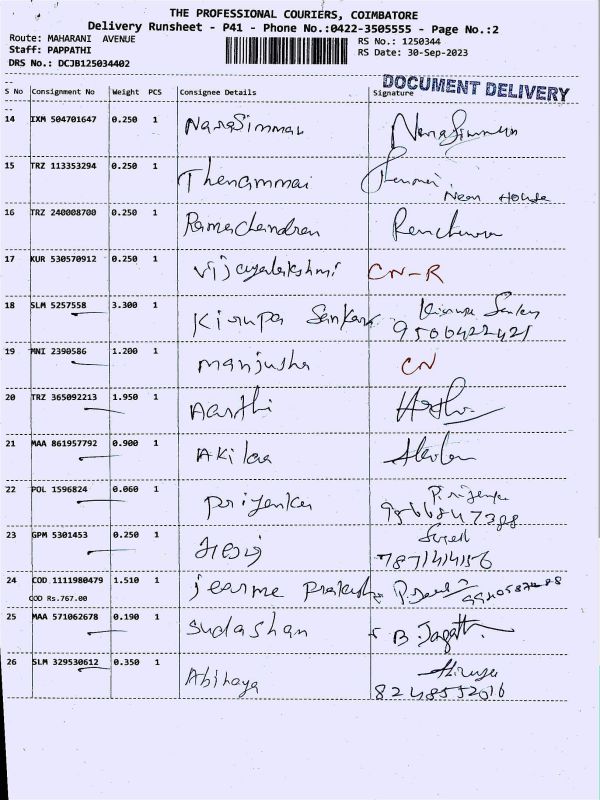 THE PROFESSIONAL COURIERS, COIMBATORE
Delivery Runsheet - P41 - Phone No.:0422-3505555 - Page No.:2
Route: MAHARANI AVENUE
Staff: PAPPATHI
DRS No.: DCJB125034402
RS No.: 1250344
RS Date: 30-Sep-2023
DOCUMENT DELIVERY
S No Consignment No Weight PCS Consignee Details Signature
14 IXM 504701647 0.250 1 Narasimman Narasimman
15 TRZ 113353294 0.250 1 Thenammai
Near House
16 TRZ 240008700 0.250 1 Ramachandran
17 KUR 530570912 0.250 1 Vijayalakshmi CN-R
18 SLM 5257558 3.300 1 Kirupa Sankar Kirupa Sankar
9506422421
19 MNI 2390586 1.200 1 Manjusha CN
20 TRZ 365092213 1.950 1 Aarthi
21 MAA 861957792 0.900 1 Akilaa
22 POL 1596824 0.060 1 Priyanka Priyanka
9566847388
23 GPM 5301453 0.250 1
24 COD 1111980479 1.510 1
COD Rs.767.00
25 MAA 571062678 0.190 1 Sudashan B. Jagath
26 SLM 329530612 0.350 1 Abinaya
8248552016